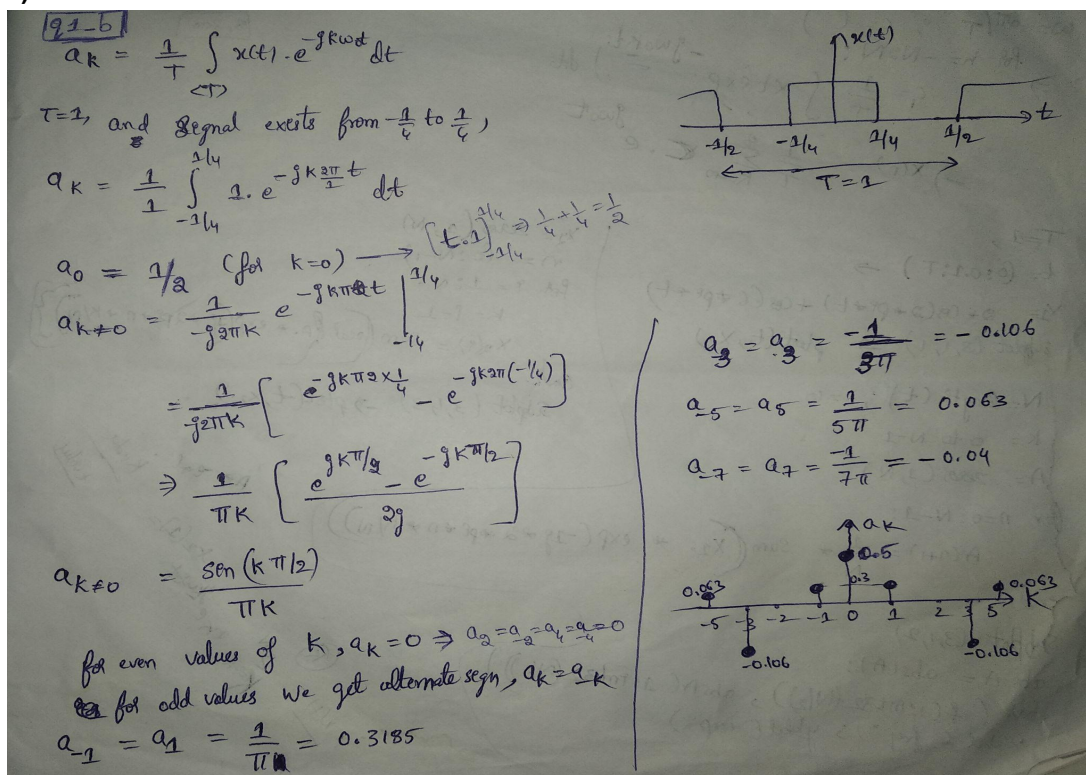 q1-b
a_k = 1/T ∫_<T> x(t).e^{-jkω₀t} dt
T=1, and signal exists from -1/4 to 1/4,
a_k = 1/1 ∫_{-1/4}^{1/4} 1.e^{-jk 2π/1 t} dt
a_0 = 1/2 (for k=0) → [t.1]_{-1/4}^{1/4} ⇒ 1/4+1/4=1/2
a_{k≠0} = 1/-j2πk e^{-jkπ2t} |_{-1/4}^{1/4}
= 1/-j2πk [e^{-jkπ2×1/4} - e^{-jk2π(-1/4)}]
⇒ 1/πk [e^{jkπ/2} - e^{-jkπ/2} / 2j]
a_{k≠0} = sin(kπ/2) / πk
for even values of k, a_k=0 ⇒ a_2=a_{-2}=a_4=a_{-4}=0
for odd values we get alternate sign, a_k=a_{-k}
a_{-1} = a_1 = 1/π = 0.3185
x(t)
t
-1/2 -1/4 1/4 1/2
T=1
a_{-3} = a_3 = -1/3π = -0.106
a_{-5} = a_5 = 1/5π = 0.063
a_{-7} = a_7 = -1/7π = -0.04
a_k
0.5
0.063 0.3 0.063
-5 -3 -2 -1 0 1 2 3 5 K
-0.106 -0.106